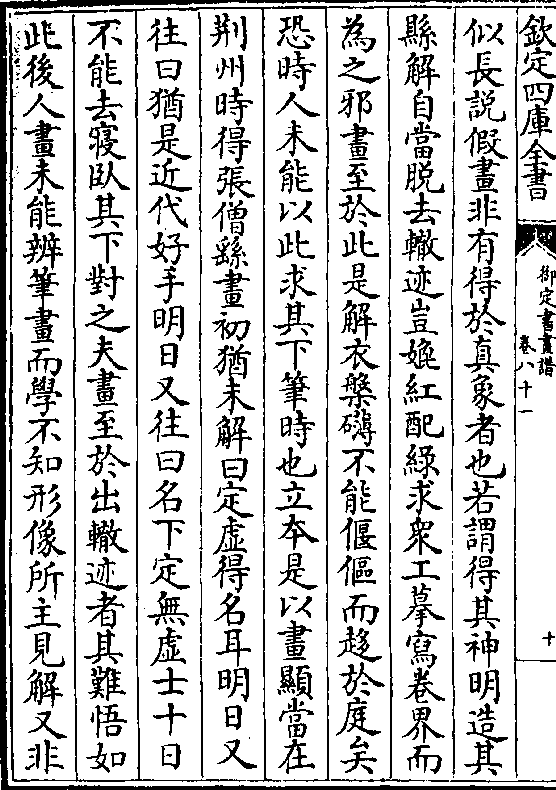 欽定四庫全書
御定書畫譜
卷八十一
十
似長説假畫非有得於真象者也若謂得其神明造其
縣解自當脱去轍迹豈媲紅配綠求衆工摹寫卷界而
為之邪畫至於此是解衣槃礴不能傴僂而趍於庭矣
恐時人未能以此求其下筆時也立本是以畫顯當在
荆州時得張僧繇畫初猶未解曰定虚得名耳明日又
往曰猶是近代好手明日又往曰名下定無虚士十日
不能去寢臥其下對之夫畫至於出轍迹者其難悟如
此後人畫未能辨筆畫而學不知形像所主見解又非